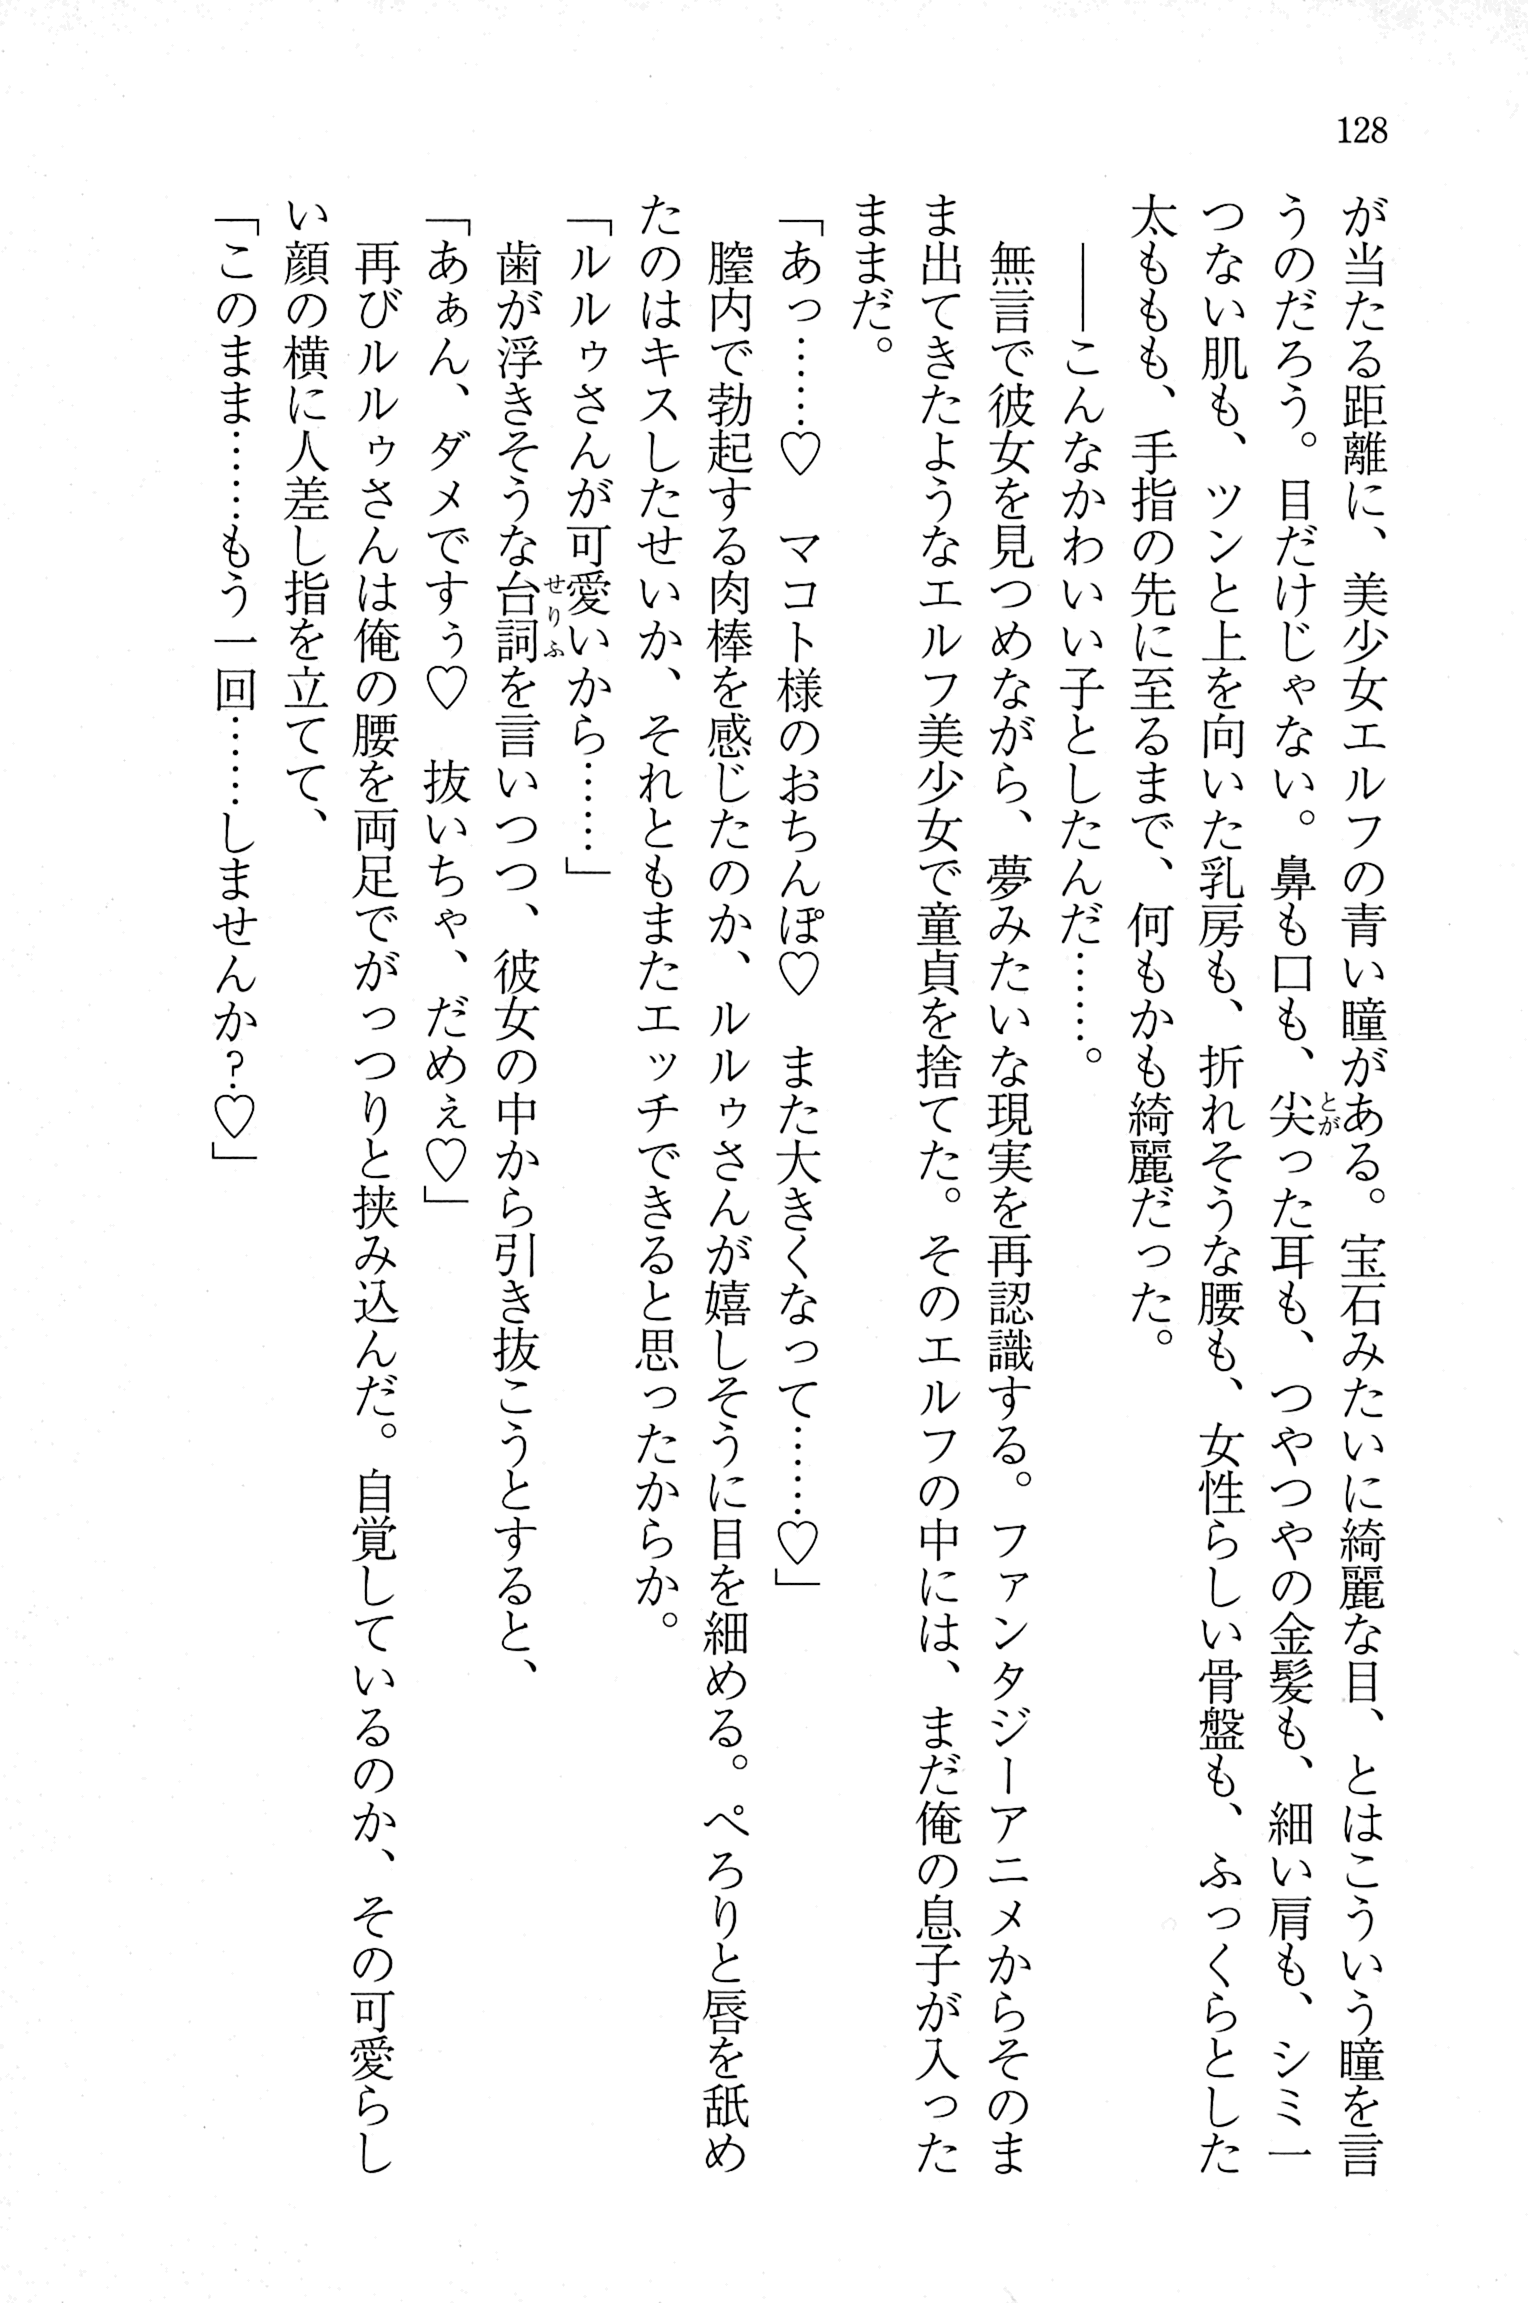 128
が当たる距離に、美少女エルフの青い瞳がある。宝石みたいに綺麗な目、とはこういう瞳を言
うのだろう。目だけじゃない。鼻も口も、尖った耳も、つやつやの金髪も、細い肩も、シミ一
つない肌も、ツンと上を向いた乳房も、折れそうな腰も、女性らしい骨盤も、ふっくらとした
太ももも、手指の先に至るまで、何もかも綺麗だった。
――こんなかわいい子としたんだ……。
無言で彼女を見つめながら、夢みたいな現実を再認識する。ファンタジーアニメからそのま
ま出てきたようなエルフ美少女で童貞を捨てた。そのエルフの中には、まだ俺の息子が入った
ままだ。
「あっ……♡　マコト様のおちんぽ♡　また大きくなって……♡」
膣内で勃起する肉棒を感じたのか、ルルゥさんが嬉しそうに目を細める。ぺろりと唇を舐め
たのはキスしたせいか、それともまたエッチできると思ったからか。
「ルルゥさんが可愛いから……」
歯が浮きそうな台詞を言いつつ、彼女の中から引き抜こうとすると、
「あぁん、ダメですぅ♡　抜いちゃ、だめぇ♡」
再びルルゥさんは俺の腰を両足でがっつりと挟み込んだ。自覚しているのか、その可愛らし
い顔の横に人差し指を立てて、
「このまま……もう一回……しませんか？♡」
とが
せりふ